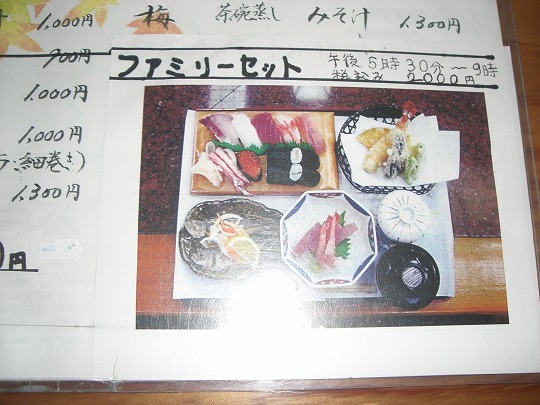 1,000円 梅 茶碗蒸し みそ汁 1,300円
900円
1,000円
1,000円
ラ:細巻き)
1,300円
円
ファミリーセット 午後5時30分～9時
税込み 2,000円